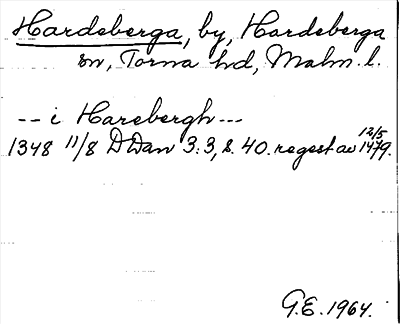 Hardeberga, by, Hardeberga
sn, Torna hd, Malm. l.
-- i Harebergh --
1348 11/8 DDan 3:3, s. 40. regest av 12/5 1479.
G.E. 1964.